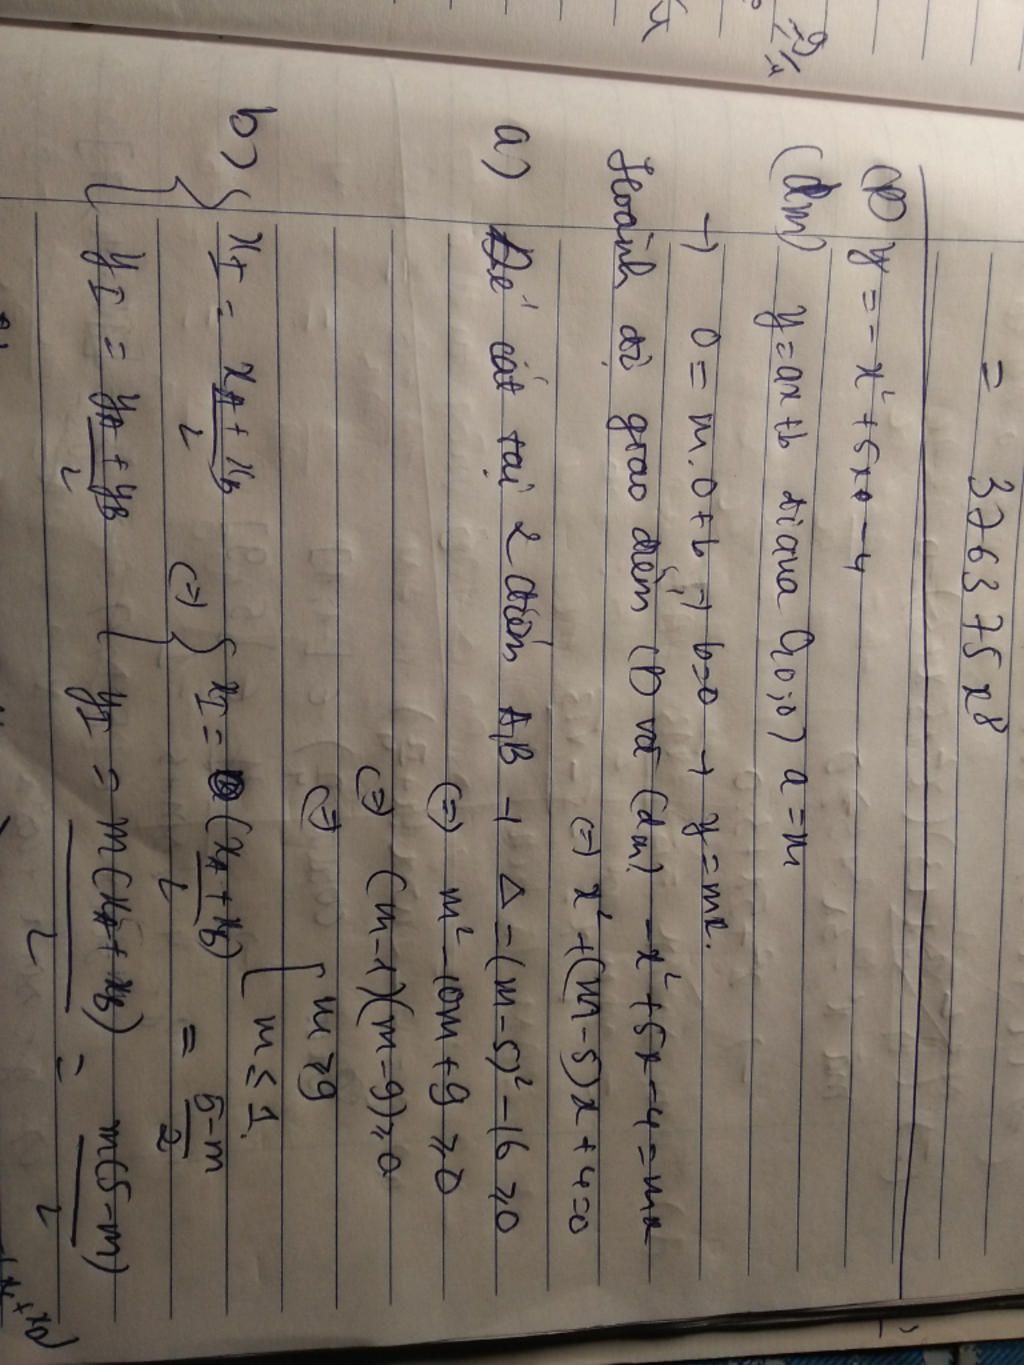 = 376375x⁸
(P) y = -x² + 5x - 4
(dm) y = ax + b đi qua O(0;0) a = m
→ 0 = m.0 + b → b=0 → y = mx.
Hoành độ giao điểm (P) và (dm) -x² + 5x - 4 = mx
(=) x² + (m-5)x + 4 = 0
a) Để cắt tại 2 điểm A,B → Δ = (m-5)² - 16 ≥ 0
(=) m² - 10m + 9 ≥ 0
(=) (m-1)(m-9) ≥ 0
(=) [ m ≥ 9
m ≤ 1.
b) { x_I = (x_A + x_B)/2 (=) { x_I = (x_A + x_B)/2 = (5-m)/2
y_I = (y_A + y_B)/2 y_I = m(x_A + x_B)/2 = m(5-m)/2